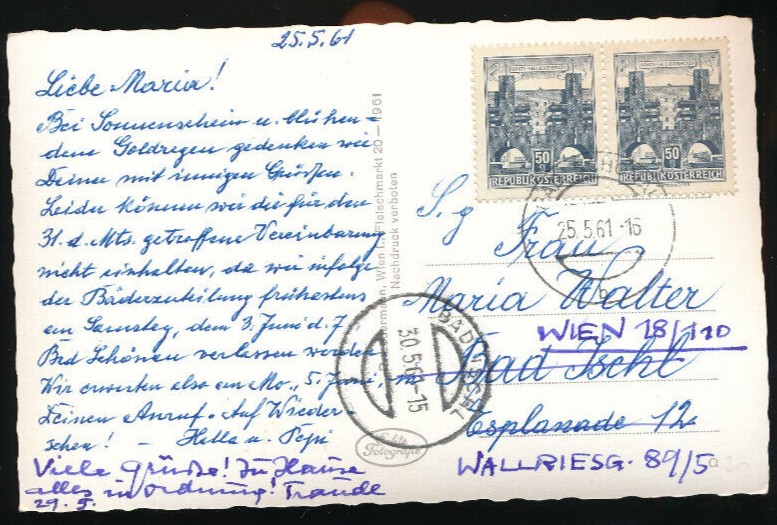 25.5.61
Liebe Maria!
Bei Sonnenschein u. blühen=
dem Goldregen gedenken wir
Deiner mit innigen Grüßen.
Leider können wir die für den
31. d. Mts. getroffene Vereinbarung
nicht einhalten, da wir infolge
der Bäderzuteilung frühestens
am Samstag, dem 3. Juni d. J.
Bad Schönau verlassen werden.
Wir erwarten also am Mo., 5. Juni,
Deinen Anruf. Auf Wieder-
sehen! – Hella u. Pepi
Viele Grüße! Zu Hause
alles in Ordnung! Traude
29. 5.
Wien I., Fleischmarkt 20 — 1961
Nachdruck verboten
Echte
Fotografie
50 g
REPUBLIK ÖSTERREICH
50 g
REPUBLIK ÖSTERREICH
25.5.61-16
BAD ISCHL
30.5.61-15
S. g
Frau
Maria Walter
WIEN 18/110
Bad Ischl
Esplanade 12
WALLRIESG. 89/5